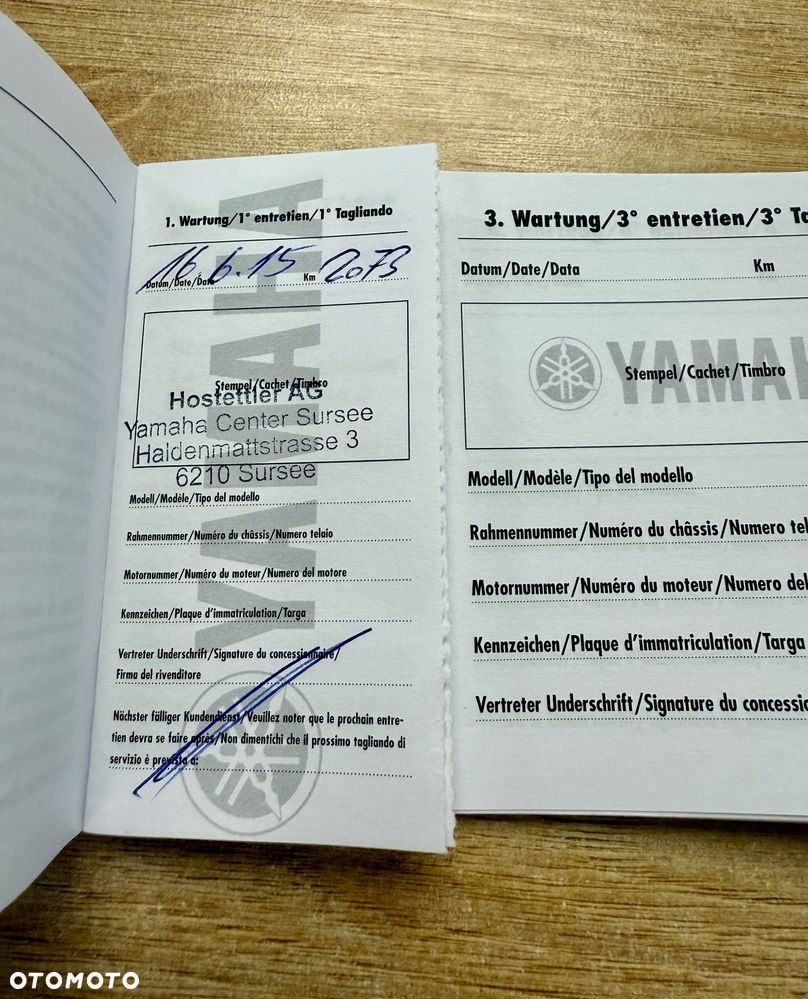 1. Wartung/1° entretien/1° Tagliando
16.6.15
2073
Datum/Date/Data
Km
Stempel/Cachet/Timbro
Hostettler AG
Yamaha Center Sursee
Haldenmattstrasse 3
6210 Sursee
Modell/Modèle/Tipo del modello
Rahmennummer/Numéro du châssis/Numero telaio
Motornummer/Numéro du moteur/Numero del motore
Kennzeichen/Plaque d'immatriculation/Targa
Vertreter Underschrift/Signature du concessionnaire/
Firma del rivenditore
Nächster fälliger Kundendienst/Veuillez noter que le prochain entre-
tien devra se faire après/Non dimentichi che il prossimo tagliando di
servizio è prevista a:
YAMAHA
3. Wartung/3° entretien/3° Ta
Datum/Date/Data
Km
YAMAH
Stempel/Cachet/Timbro
Modell/Modèle/Tipo del modello
Rahmennummer/Numéro du châssis/Numero tel
Motornummer/Numéro du moteur/Numero del
Kennzeichen/Plaque d'immatriculation/Targa
Vertreter Underschrift/Signature du concessio
OTOMOTO